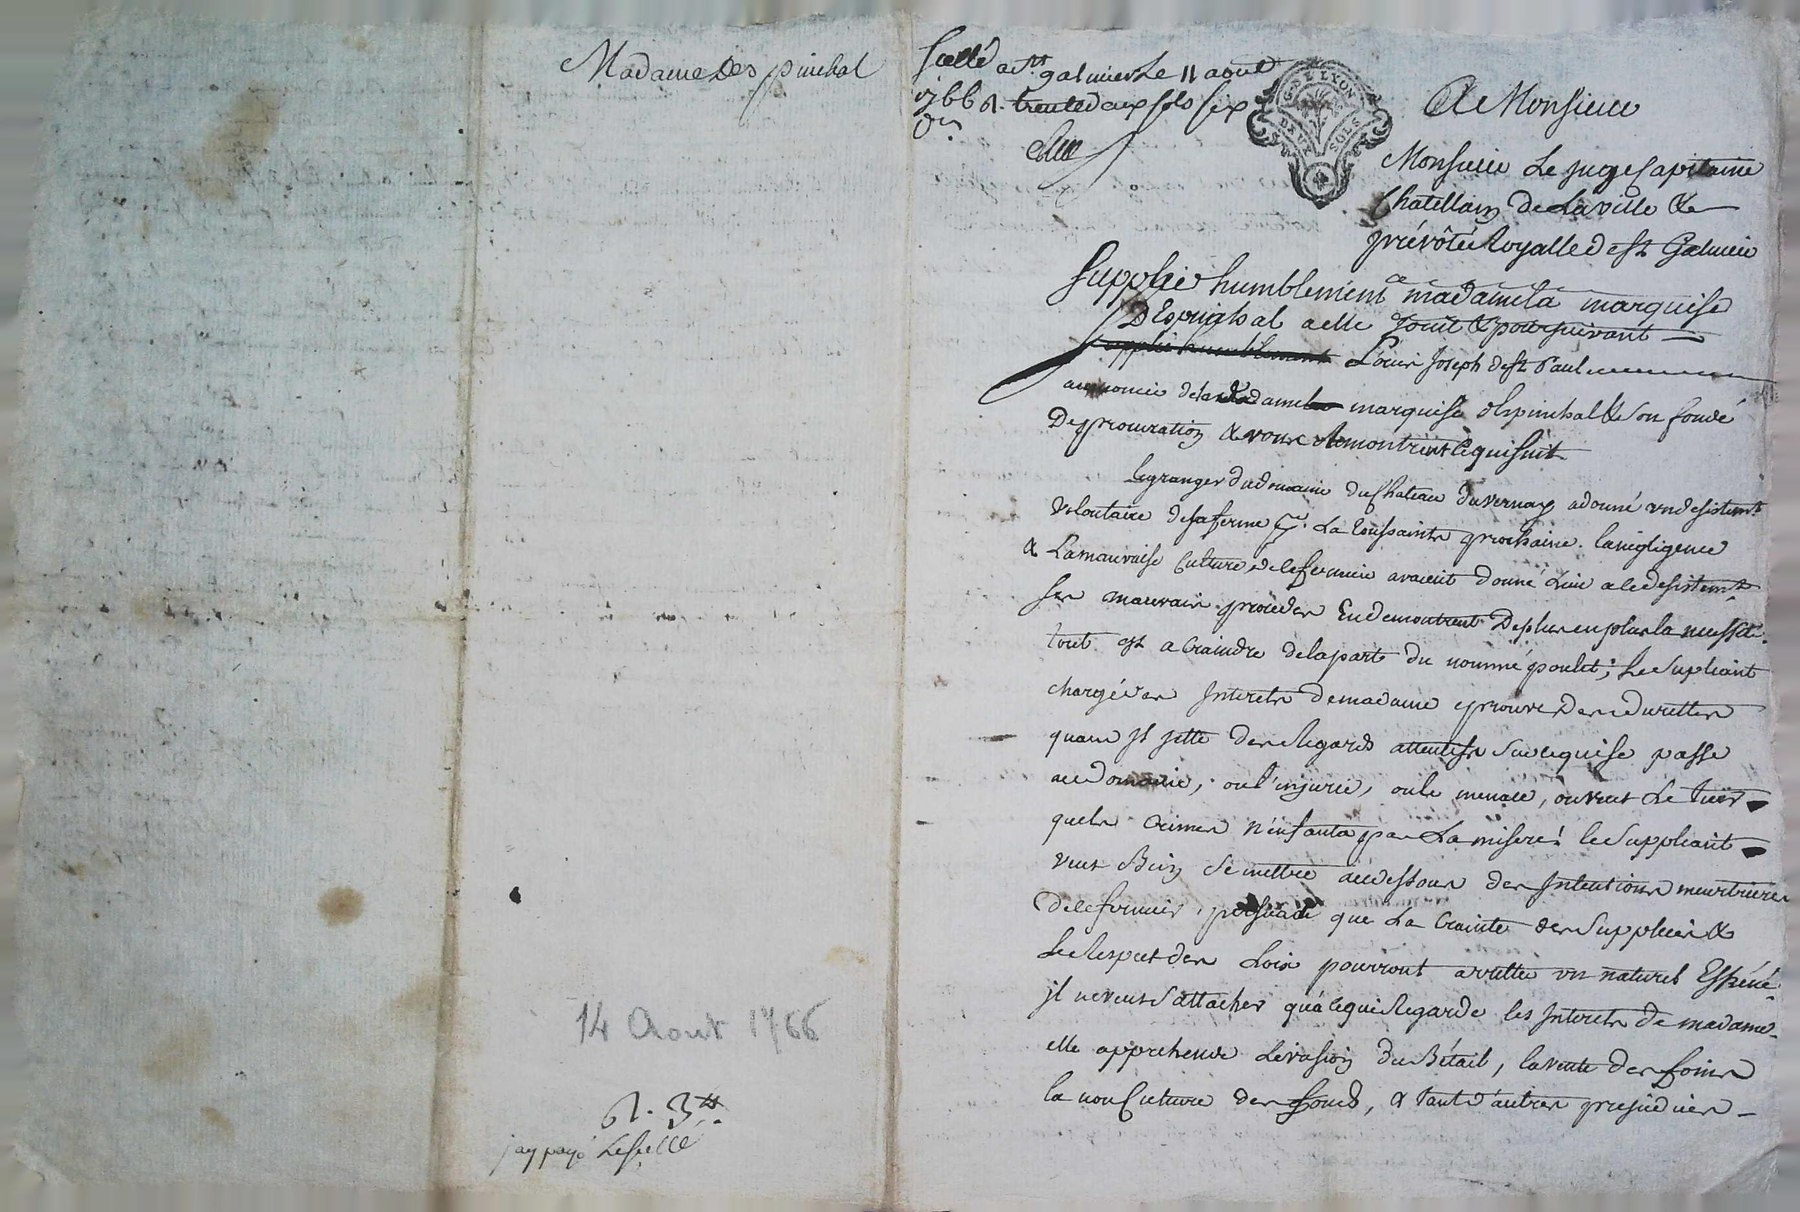 Madame Despinchal
14 Aout 1766
R. 3ᵗᵗ.
jay payé Le scellé
scellé a Sᵗ galmier Le 11 aout
1766 R. trente deux sols six
Drs
G. DE LYON
DEUX SOLS
A Monsieur
Monsieur Le juge Capitaine
Chatellain de La ville &
prévôté Royalle de st Galmier
Supplie humblement madame la marquise
D'Espinchal a elle joint & poursuivant
supplie humblement Louis Joseph de st Paul
au nom de la ditte dame marquise d'Espinchal & son fondé
De procuration & vous Remontrent ce qui suit
le granger du domaine du Chateau du vernay a donné un desistemt
volontaire de sa ferme pr. La toussaints prochaine. la negligence
& La mauvaise Culture de ce fermier avaient donné Lieu a ce desistemt
ses mauvais proceder En demontrent De plus en plus la necessité.
tout est a Craindre de la part du nommé poulet; Le Supliant
chargé des Interets de madame eprouve des duretter
quand Il jette des Regards attentifs Sur ce qui se passe
au domaine; on l'injurie, on le menace, on veut Le tuer
quels Crimes n'enfanta pas La misere! le Suppliant
veut Bien se mettre au dessous des Intentions meurtrieres
de ce fermier, persuadé que La Crainte des Supplices &
Le Respect des Loix pourront arretter un naturel Effréné
jl ne veut s'attacher qu'a ce qui Regarde les Interets de madame
elle apprehende L'evasion du Bétail, la vente des foins
la non Culture des fonds, & tant d'autres prejudices